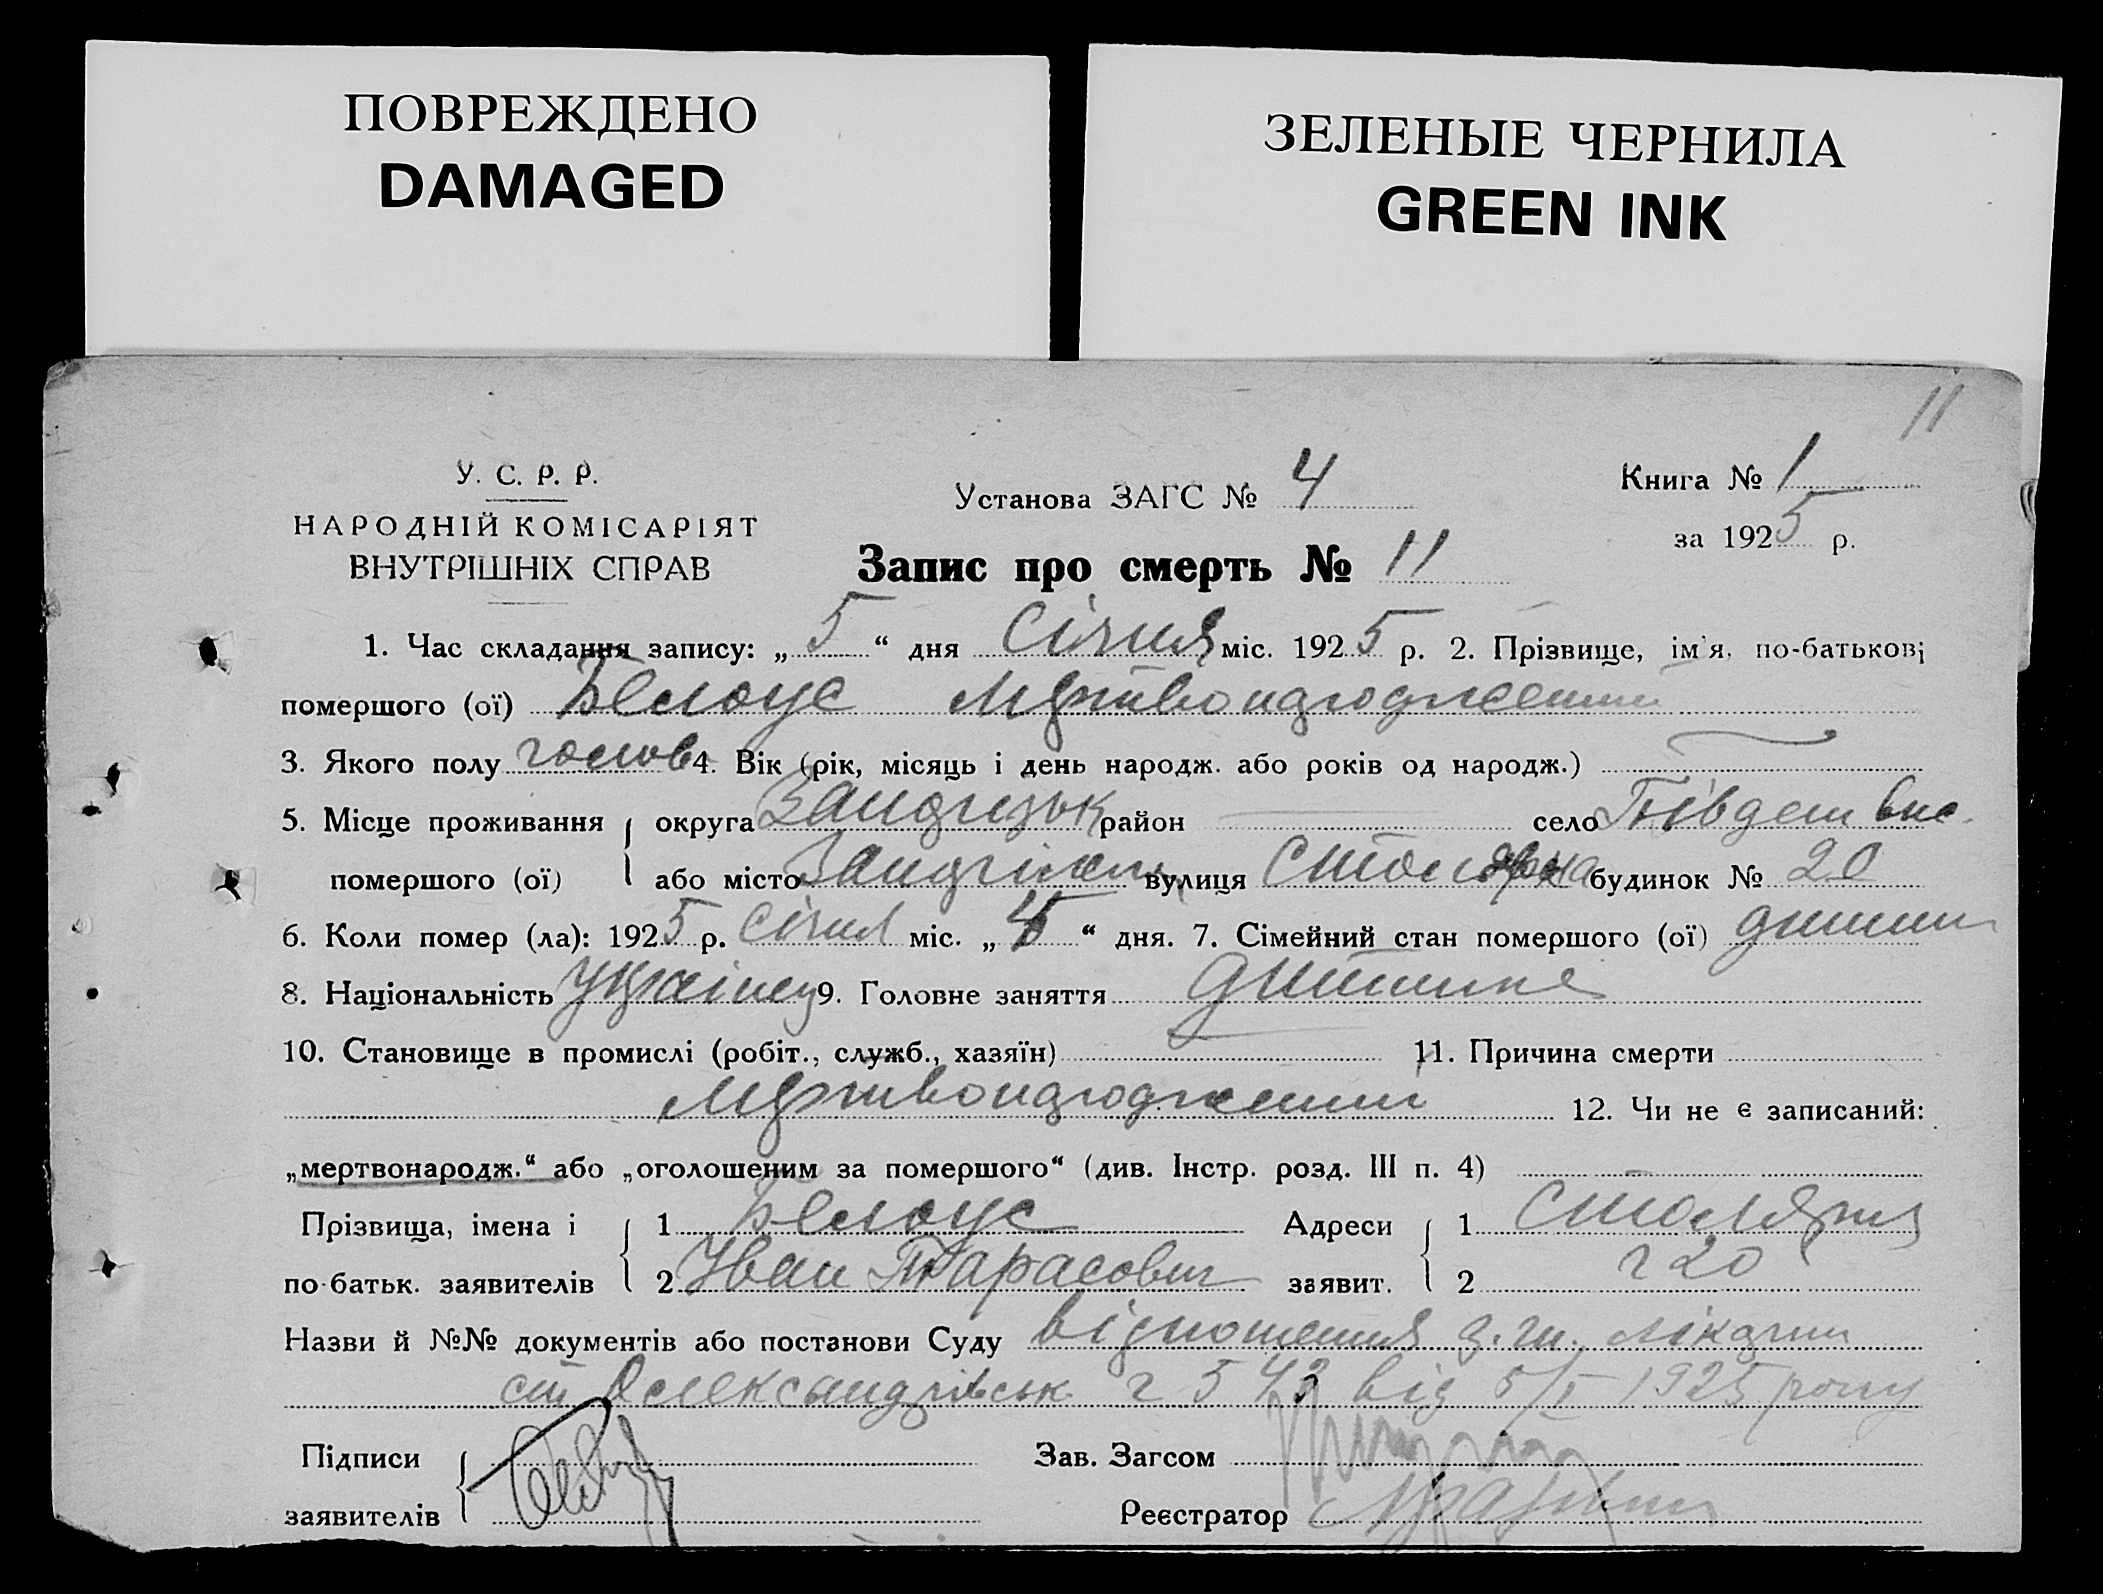 ПОВРЕЖДЕНО
DAMAGED
ЗЕЛЕНЫЕ ЧЕРНИЛА
GREEN INK
11
У. С. Р. Р.
НАРОДНІЙ КОМІСАРІЯТ
ВНУТРІШНІХ СПРАВ
Установа ЗАГС № 4
Книга № 1
за 1925 р.
Запис про смерть № 11
1. Час складання запису: „5“ дня Січня міс. 1925 р. 2. Прізвище, ім'я, по-батькові
помершого (ої) Белоус Мертвонароджений
3. Якого полу чолов 4. Вік (рік, місяць і день народж. або років од народж.)
5. Місце проживання округа район село
помершого (ої) або місто вулиця будинок № 20
6. Коли помер (ла): 1925 р. Січня міс. „ “ дня. 7. Сімейний стан помершого (ої)
8. Національність українец 9. Головне заняття дитина
10. Становище в промислі (робіт., служб., хазяїн) 11. Причина смерти
Мертвонароджений 12. Чи не є записаний:
„мертвонародж.“ або „оголошеним за помершого“ (див. Інстр. розд. III п. 4)
Прізвища, імена і 1 Белоус Адреси 1 Столярна
по-батьк. заявителів 2 Іван Тарасович заявит. 2 20
Назви й №№ документів або постанови Суду відношення
ст Олександрівськ 543 від 5/I 1925 року
Підписи Зав. Загсом
заявителів Реєстратор